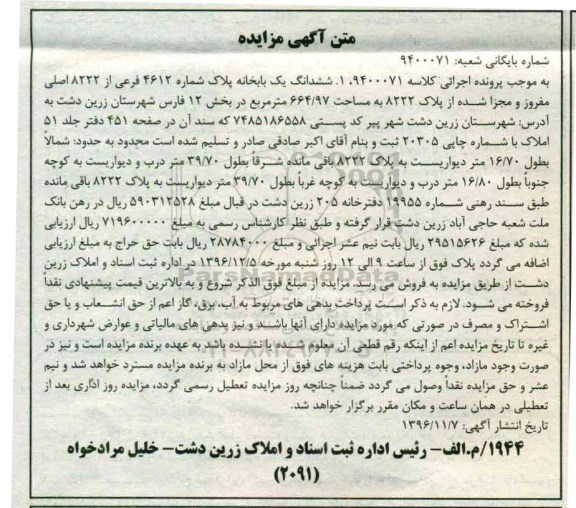 متن آگهی مزایده
شماره بایگانی شعبه: ۹۴۰۰۰۷۱
به موجب پرونده اجرائی کلاسه ۹۴۰۰۰۷۱، ۱. ششدانگ یک بابخانه پلاک شماره ۴۶۱۲ فرعی از ۸۲۲۲ اصلی
مفروز و مجزا شده از پلاک ۸۲۲۲ به مساحت ۶۶۴/۹۷ مترمربع در بخش ۱۲ فارس شهرستان زرین دشت به
آدرس: شهرستان زرین دشت شهر پیر کد پستی ۷۴۸۵۱۸۶۵۵۸ که سند آن در صفحه ۴۵۱ دفتر جلد ۵۱
املاک با شماره چاپی ۲۰۳۰۵ ثبت و بنام آقای اکبر صادقی صادر و تسلیم شده است محدود به حدود: شمالاً
بطول ۱۶/۷۰ متر دیواریست به پلاک ۸۲۲۲ باقی مانده شرقاً بطول ۳۹/۷۰ متر درب و دیواریست به کوچه
جنوباً بطول ۱۶/۸۰ متر درب و دیواریست به کوچه غرباً بطول ۳۹/۷۰ متر دیواریست به پلاک ۸۲۲۲ باقی مانده
طبق سند رهنی شماره ۱۹۹۵۵ دفترخانه ۲۰۵ زرین دشت در قبال مبلغ ۵۹۰۳۱۲۵۲۸ ریال در رهن بانک
ملت شعبه حاجی آباد زرین دشت قرار گرفته و طبق نظر کارشناس رسمی به مبلغ ۷۱۹۶۰۰۰۰۰ ریال ارزیابی
شده که مبلغ ۲۹۵۱۵۶۲۶ ریال بابت نیم عشر اجرائی و مبلغ ۲۸۷۸۴۰۰۰ ریال بابت حق حراج به مبلغ ارزیابی
اضافه می گردد پلاک فوق از ساعت ۹ الی ۱۲ روز شنبه مورخه ۱۳۹۶/۱۲/۵ در اداره ثبت اسناد و املاک زرین
دشت از طریق مزایده به فروش می رسد. مزایده از مبلغ فوق الذکر شروع و به بالاترین قیمت پیشنهادی نقداً
فروخته می شود. لازم به ذکر است پرداخت بدهی های مربوط به آب، برق، گاز اعم از حق انشعاب و یا حق
اشتراک و مصرف در صورتی که مورد مزایده دارای آنها باشد و نیز بدهی های مالیاتی و عوارض شهرداری و
غیره تا تاریخ مزایده اعم از اینکه رقم قطعی آن معلوم شده یا نشده باشد به عهده برنده مزایده است و نیز در
صورت وجود مازاد، وجوه پرداختی بابت هزینه های فوق از محل مازاد به برنده مزایده مسترد خواهد شد و نیم
عشر و حق مزایده نقداً وصول می گردد ضمناً چنانچه روز مزایده تعطیل رسمی گردد، مزایده روز اداری بعد از
تعطیلی در همان ساعت و مکان مقرر برگزار خواهد شد.
تاریخ انتشار آگهی: ۱۳۹۶/۱۱/۷
۱۹۴۴/م.الف- رئیس اداره ثبت اسناد و املاک زرین دشت- خلیل مرادخواه
(۲۰۹۱)